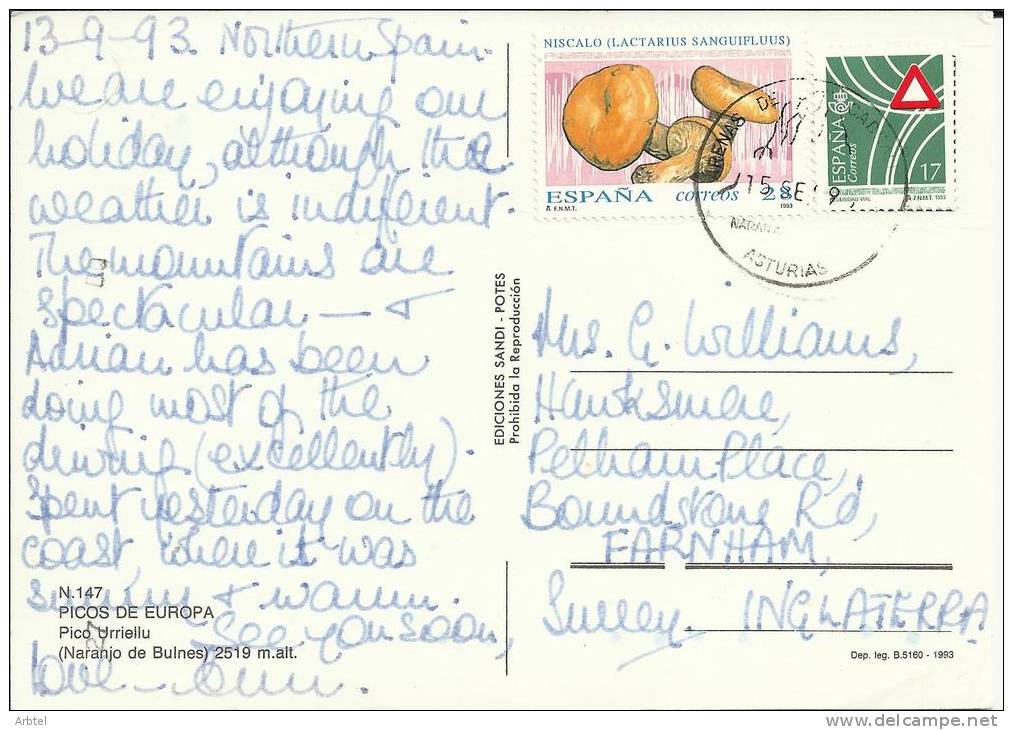 13-9-93. Northern Spain.
We are enjoying our
holiday, although the
weather is indifferent.
The mountains are
spectacular — &
Adrian has been
doing most of the
driving (excellently).
Spent yesterday on the
coast, where it was
sunny & warm.
See you soon,
love — Ann.
N.147
PICOS DE EUROPA
Pico Urriellu
(Naranjo de Bulnes) 2519 m.alt.
EDICIONES SANDI - POTES
Prohibida la Reproducción
NISCALO (LACTARIUS SANGUIFLUUS)
ESPAÑA correos 28
F.N.M.T. 1993
ESPAÑA
Correos
17
SEGURIDAD VIAL F.N.M.T. 1993
ARENAS DE
15 SE
ASTURIAS
Mrs. G. Williams,
Hawksmere,
Pelham Place,
Boundstone Rd,
FARNHAM,
Surrey. INGLATERRA
Dep. leg. B.5160 - 1993
Arbtel
http://www.delcampe.net